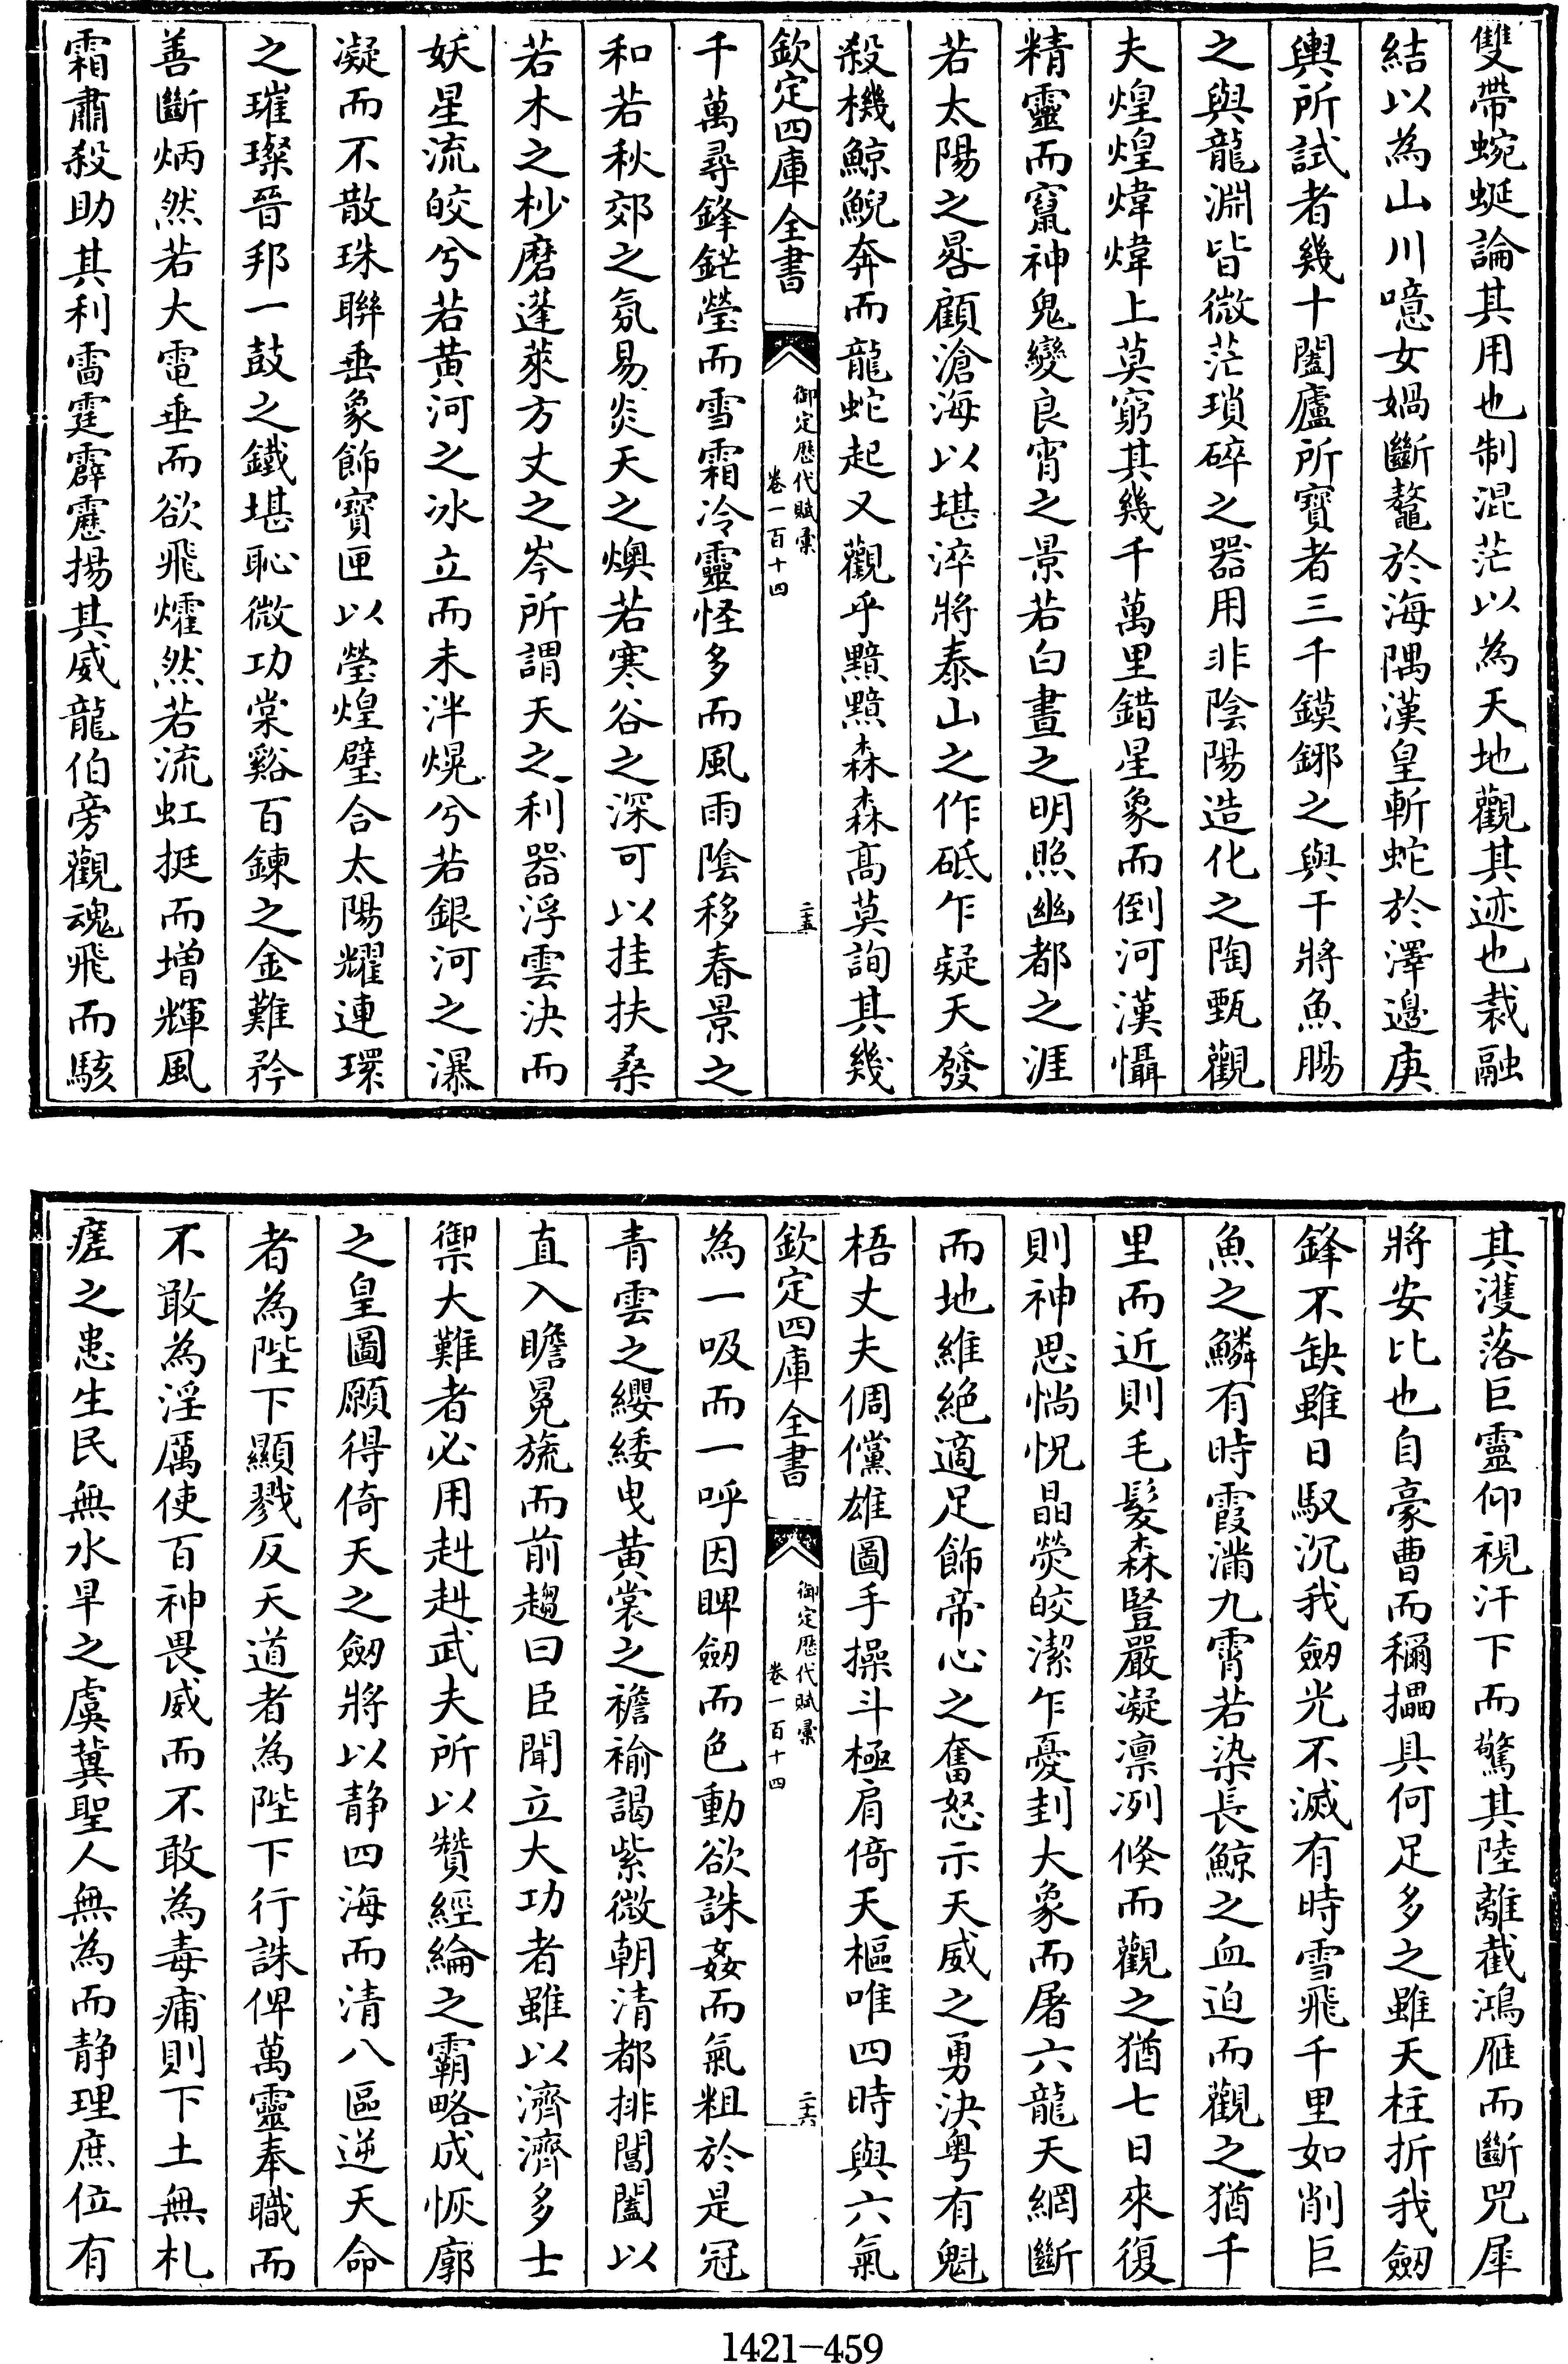 雙帶蜿蜒論其用也制混茫以為天地觀其迹也裁融
結以為山川噫女媧斷鼇於海隅漢皇斬蛇於澤邊庚
輿所試者幾十闔廬所寶者三千鏌鋣之與干將魚腸
之與龍淵皆微茫瑣碎之器用非陰陽造化之陶甄觀
夫煌煌煒煒上莫窮其幾千萬里錯星象而倒河漢懾
精靈而竄神鬼變良宵之景若白晝之明照幽都之涯
若太陽之晷顧滄海以堪淬將泰山之作砥乍疑天發
殺機鯨鯢奔而龍蛇起又觀乎黯黯森森高莫詢其幾
欽定四庫全書
御定歷代賦彙
卷一百十四
二十五
千萬尋鋒鋩瑩而雪霜冷靈怪多而風雨陰移春景之
和若秋郊之氛易炎天之燠若寒谷之深可以挂扶桑
若木之杪磨蓬萊方丈之岑所謂天之利器浮雲決而
妖星流皎兮若黃河之冰立而未泮熀兮若銀河之瀑
凝而不散珠聯垂象飾寶匣以瑩煌璧合太陽耀連環
之璀璨晉邦一鼓之鐵堪恥微功棠谿百鍊之金難矜
善斷炳然若大電垂而欲飛爠然若流虹挺而增輝風
霜肅殺助其利雷霆霹靂揚其威龍伯旁觀魂飛而駭
其濩落巨靈仰視汗下而驚其陸離截鴻雁而斷兕犀
將安比也自豪曹而穪擂具何足多之雖天柱折我劒
鋒不缺雖日馭沉我劒光不滅有時雪飛千里如削巨
魚之鱗有時霞滿九霄若染長鯨之血迫而觀之猶千
里而近則毛髮森豎嚴凝凛冽倏而觀之猶七日來復
則神思惝怳晶熒皎潔乍憂刲大象而屠六龍天綱斷
而地維絕適足飾帝心之奮怒示天威之勇決粤有魁
梧丈夫倜儻雄圖手操斗極肩倚天樞唯四時與六氣
欽定四庫全書
御定歷代賦彙
卷一百十四
二十六
為一吸而一呼因睥劒而色動欲誅姦而氣粗於是冠
青雲之纓緌曳黃裳之襜褕謁紫微朝清都排閶闔以
直入瞻冕旒而前趨曰臣聞立大功者雖以濟濟多士
禦大難者必用赳赳武夫所以贊經綸之霸略成恢廓
之皇圖願得倚天之劒將以靜四海而清八區逆天命
者為陛下顯戮反天道者為陛下行誅俾萬靈奉職而
不敢為淫厲使百神畏威而不敢為毒痡則下土無札
瘥之患生民無水旱之虞冀聖人無為而靜理庶位有
1421-459